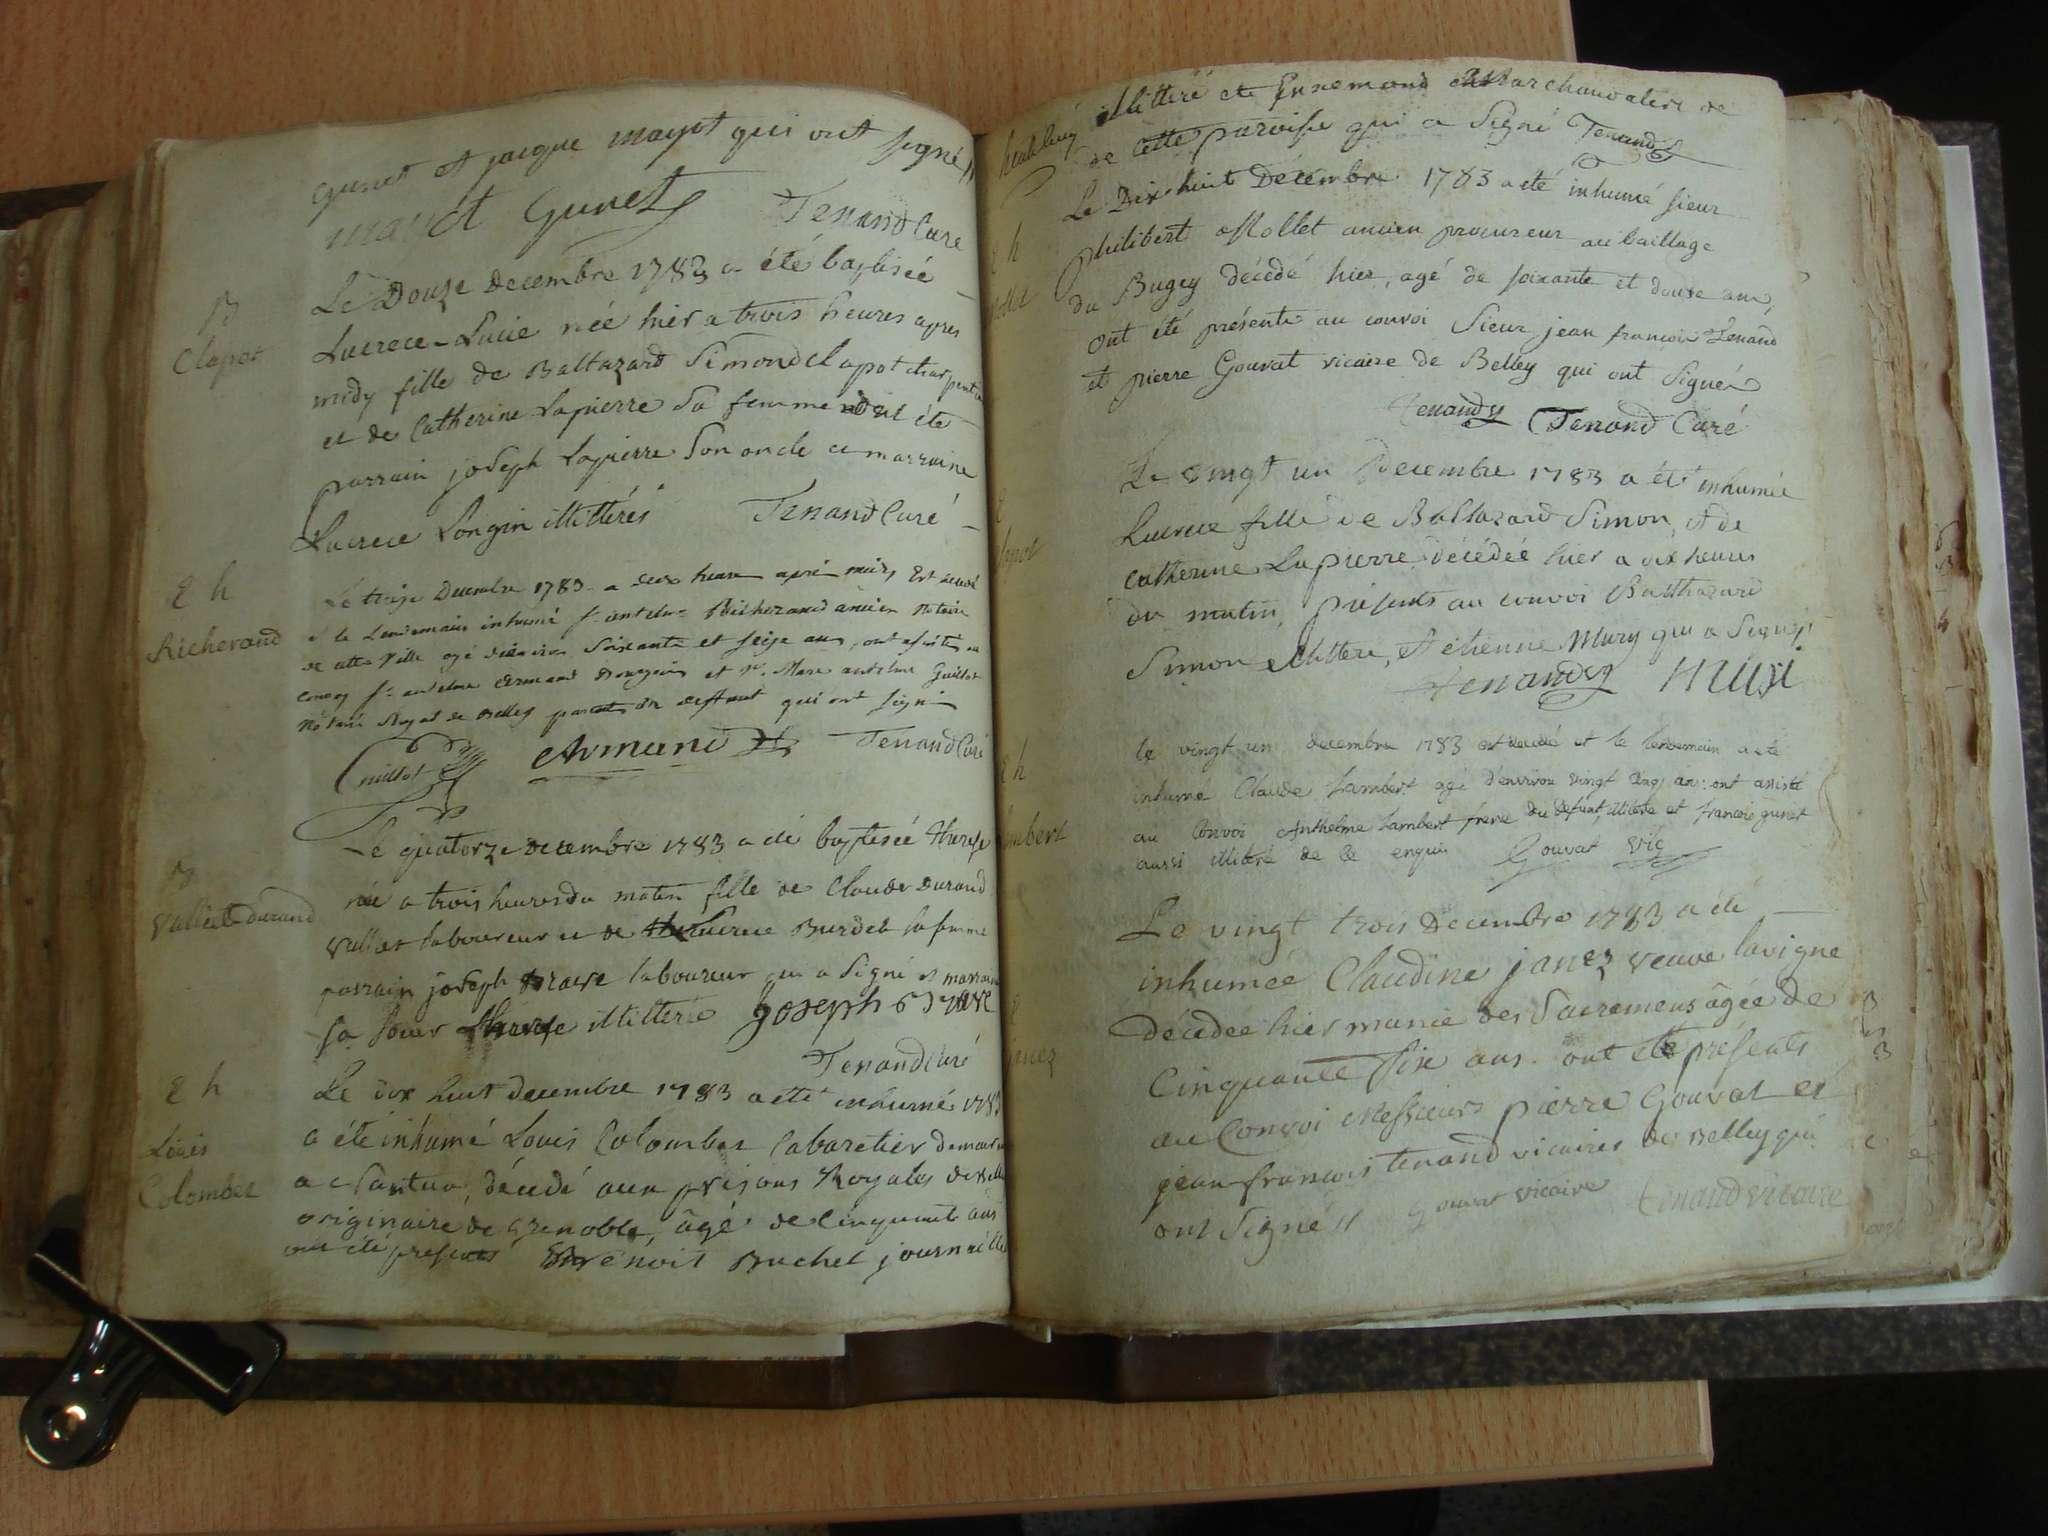 gunet et jacque mayot qui ont signé //
mayot Gunet Tenand Curé
B
Clapot
Le Douze decembre 1783 a été baptisée
Lucrece-Lucie née hier a trois heures apres
midy fille de Baltazard Simond Clapot charpentier
et de Catherine Lapierre Sa femme dont été
parrain joseph Lapierre Son oncle et marraine
Lucrece Longin illittérés Tenand Curé
E h
Richerand
Le treize Decembre 1783 a deux heures après midy Est decedé
et le Lendemain inhumé sr antelme Richerand ancien Notaire
de cette Ville agé d'environ Soixante et seize ans, ont assisté au
convoy sr antelme Armand Bourgeois et sr. Marc antelme Guillot
Notaire Royal de Belley parents du deffunt qui ont signé
Guillot Armand Tenand Curé
B
Vallet Durand
Le quatorze decembre 1783 a été baptisée therese
née a trois heures du matin fille de Claude Durand
Vallet laboureur et de Lucrece Burdet sa femme
parrain joseph Brave laboureur qui a Signé et marraine
sa soeur therese illitterée Joseph Brave
Tenand Curé
E h
Louis
Colombet
Le dix huit decembre 1783 a eté inhumé 1783
a été inhumé Louis Colombet Cabaretier demeurant
a Nantua, décédé aux prisons Royales de Belley
originaire de Grenoble, âgé de Cinquante ans
ont été presents Benoit Buchet journallier
illitteré et Ennemond Marchand aussi de
de cette paroisse qui a Signé Tenand
E h
Mollet
Le Dix huit Décembre 1783 a eté inhumé sieur
philibert Mollet ancien procureur au baillage
du Bugey décédé hier, agé de soixante et douze ans,
ont été présents au convoi Sieur jean francois Tenand
et pierre Gouvat vicaire de Belley qui ont Signés
Tenand Tenand Curé
E
Clapot
Le vingt un Decembre 1783 a été inhumée
Lucrece fille de Baltazard Simon, et de
catherine Lapierre décédée hier a dix heures
du matin, présents au convoi Balthazard
Simon illittere, et etienne Mury qui a Signé
Tenand Muri
E h
Lambert
le vingt un decembre 1783 est decedé et le lendemain a eté
inhumé Claude Lambert agé d'environ vingt cinq ans: ont assisté
au Convoi Anthelme Lambert frere du defunt, illitéré et francois gunet
aussi illitéré de ce enquis Gouvat Vic
E
janez
Le vingt trois Decembre 1783 a été
inhumée Claudine janez veuve lavigne
décédée hier munie des Sacremens âgée de
Cinquante Six ans. ont été présents
au Convoi Messieurs pierre Gouvat et
jean-francois tenand vicaires de Belley qui
ont Signé // gouvat vicaire tenand vicaire